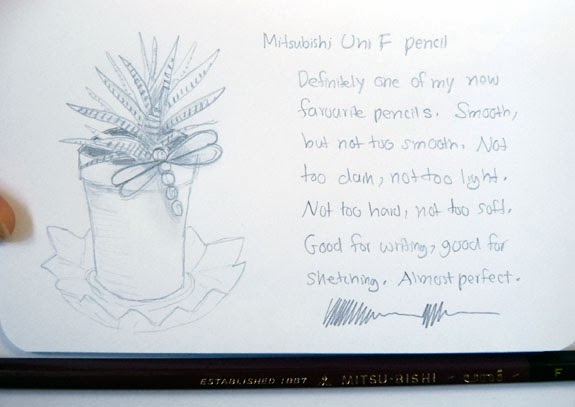 Mitsubishi Uni F pencil
Definitely one of my now
favourite pencils. Smooth,
but not too smooth. Not
too dark, not too light.
Not too hard, not too soft.
Good for writing, good for
sketching. Almost perfect.
ESTABLISHED 1887 MITSU-BISHI F